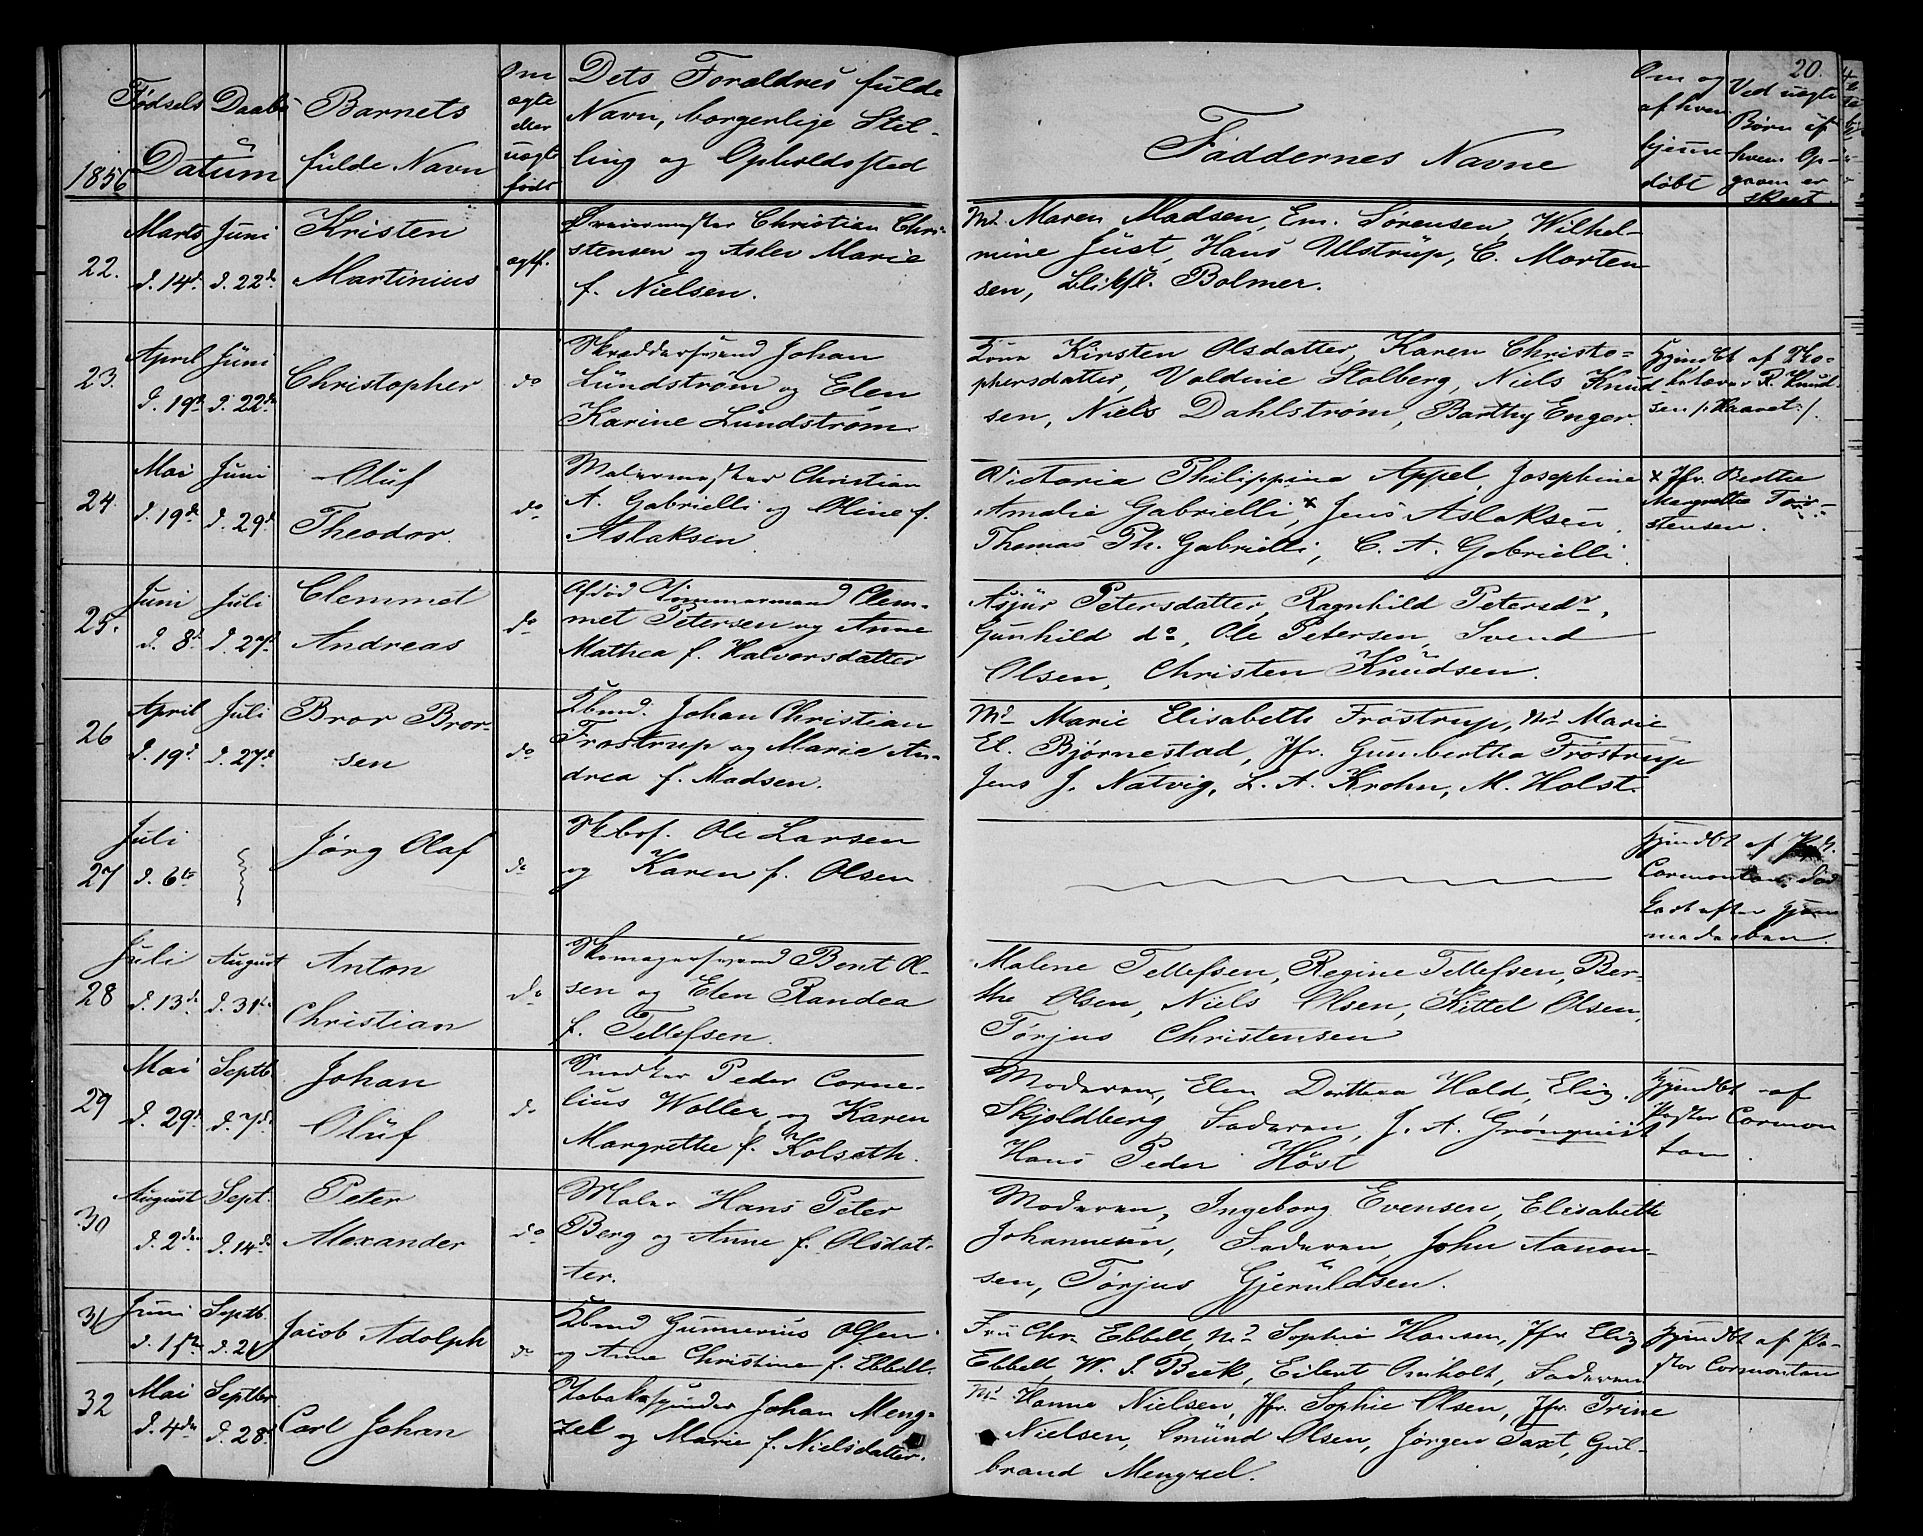 20.
1856
Fødsels Daabs
Datum
Barnets
fulde Navn
Om
ægte
eller
uægte
født
Dets Forældres fulde
Navn, borgerlige Stil-
ling og Opholdssted
Faddernes Navne
Om og
af hvem
hjemme
døbt
Ved uægte
Børn af
hvem Op-
gaven er
skeet
22.
Marts Juni
d. 14de d. 22de
Kristen
Martinius
ægtf.
Dreiermester Christian Chri-
stensen og Aslev Marie
f. Nielsen.
Md. Maren Madsen, Em. Sørensen, Wilhel-
mine Just, Hans Ulstrup, C. Morten
sen, Bolmer.
23.
April Juni
d. 19de d. 22de
Christopher
do
Skræddersvend Johan
Lundstrøm og Elen
Karine Lundstrøm
Kone Kirsten Olsdatter, Karen Christo-
phersdatter, Valdine Stalberg, Niels Knud-
sen, Niels Dahlstrøm, Barthy Enger.
Hjemdbt af
R. Knud-
sen
24.
Mai Juni
d. 19de d. 29de
Oluf
Theodor.
do
Malermester Christian
A. Gabrielli og Oline f.
Aslaksen.
Victoria Philippine Appel, Josephine
Amalie Gabrielli, x Jens Aslaksen,
Thomas Ph. Gabrielli, C. A. Gabrielli.
x Jfr. Berthe
Margrethe Tor-
stensen.
25.
Juni Juli
d. 8de d. 27de
Clemmet
Andreas
do
Afdød Tømmermand Clem-
met Petersen og Anne
Mathea f. Halvorsdatter
Asjur Petersdatter, Ragnhild Petersdr.,
Gunhild do, Ole Petersen, Svend
Olsen, Christen Knudsen.
26
April Juli
d. 19de d. 27de
Bror Bror-
sen
do
Kbmd. Johan Christian
Frøstrup og Marie An-
drea f. Madsen.
Md Marie Elisabeth Frøstrup, Md Marie
El. Bjørnestad, Jfr. Gumbertha Frøstrup
Jens J. Natvig, L. A. Krohn, M. Holst.
27
Juli
d. 6te
Jørg Olaf
do
Ole Larsen
og Karen f. Olsen
Hjemdbt af
Cormontan, død
strax efter Hjem-
medaaben.
28
Juli August
d. 13de d. 31te
Anton
Christian
do
Skomagersvend Bent Ol-
sen og Elen Randea
f. Tellefsen.
Malene Tellefsen, Regine Tellefsen, Ber-
the Olsen, Niels Olsen, Kittel Olsen,
Tørjus Christensen
29
Mai Septb.
d. 29de d. 7de
Johan
Oluf
do
Snedker Peder Corne-
lius Woller og Karen
Margrethe f. Kolseth.
Moderen, Elen Dorthea Hald, Eliz.
Skjoldberg, Faderen, J. A. Grönquist
Hans Peder Höst
Hjemdbt af
Pastor Cormon
tan.
30
August Sept.
d. 2den d. 14de
Peter
Alexander
do
Maler Hans Peter
Berg og Anne f. Olsdat-
ter.
Moderen, Ingeborg Evensen, Elisabeth
Johannesen, Faderen, John Aanon-
sen, Tørjus Gjeruldsen.
31
Juni Septb.
d. 1ste d. 21
Jacob Adolph
do
Kbmd Gunnerius Olsen
og Anne Christine f. Ebbell.
Fru Chr. Ebbell, Md Sophie Hansen, Jfr Eliz
Ebbell, W. S. Beck, Eilert Omholt, Faderen
Hjemdbt af Pa-
stor Cormontan
32
Mai Septbr
d. 4de d. 28de
Carl Johan
Tobakspinder Johan Meng-
zel og Marie f. Nielsdatter.
Md Hanna Nielsen, Jfr. Sophie Olsen, Jfr. Trine
Nielsen, Omund Olsen, Jørgen Taxt, Gul-
brand Mengzel.